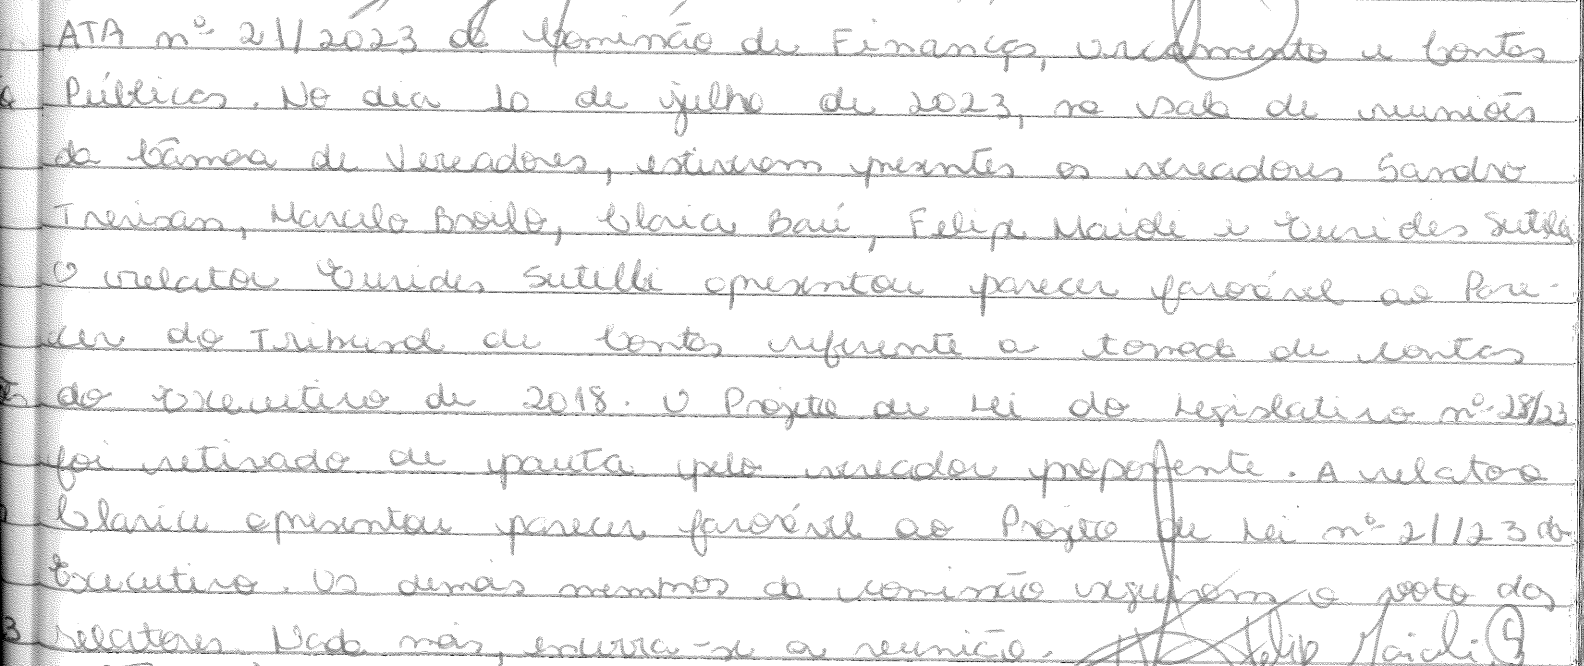 ATA nº 21/2023 da Comissão de Finanças, Orçamento e Contas
Públicas. No dia 10 de julho de 2023, na sala de reuniões
da Câmara de Vereadores, estiveram presentes os vereadores Sandro
Trevisan, Marcelo Broilo, Clarice Baú, Felipe Maioli e Eurides Sutilli
O relator Eurides Sutilli apresentou parecer favorável ao Pare-
cer do Tribunal de Contas referente a tomada de contas
do Executivo de 2018. O Projeto de Lei do Legislativo nº 28/23
foi retirado de pauta pelo vereador proponente. A relatora
Clarice apresentou parecer favorável ao Projeto de Lei nº 21/23 do
Executivo. Os demais membros da comissão seguiram o voto dos
relatores. Nada mais, encerra-se a reunião. Felipe Maioli